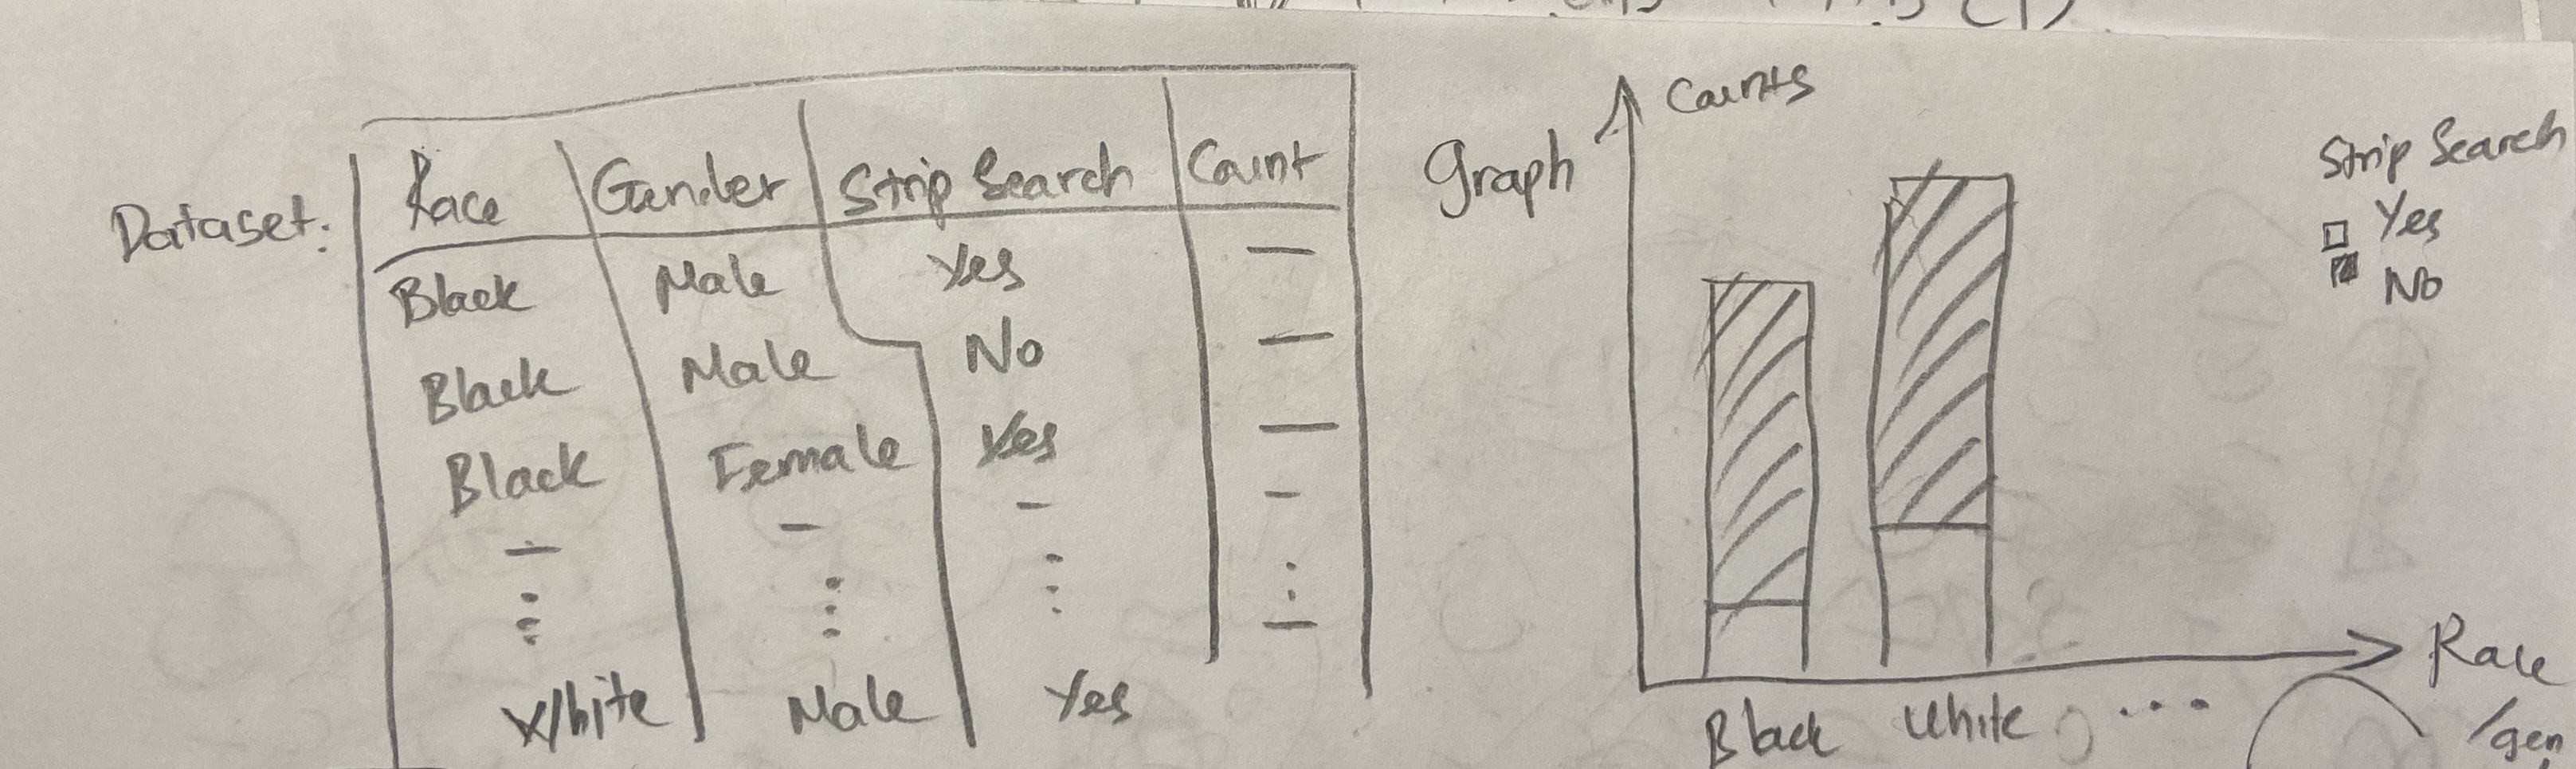 Dataset:
Race Gender Strip Search Count
Black Male Yes —
Black Male No —
Black Female Yes —
— — — —
White Male Yes
Graph
Counts
Strip Search
Yes
No
Black White ...
Race
/gen